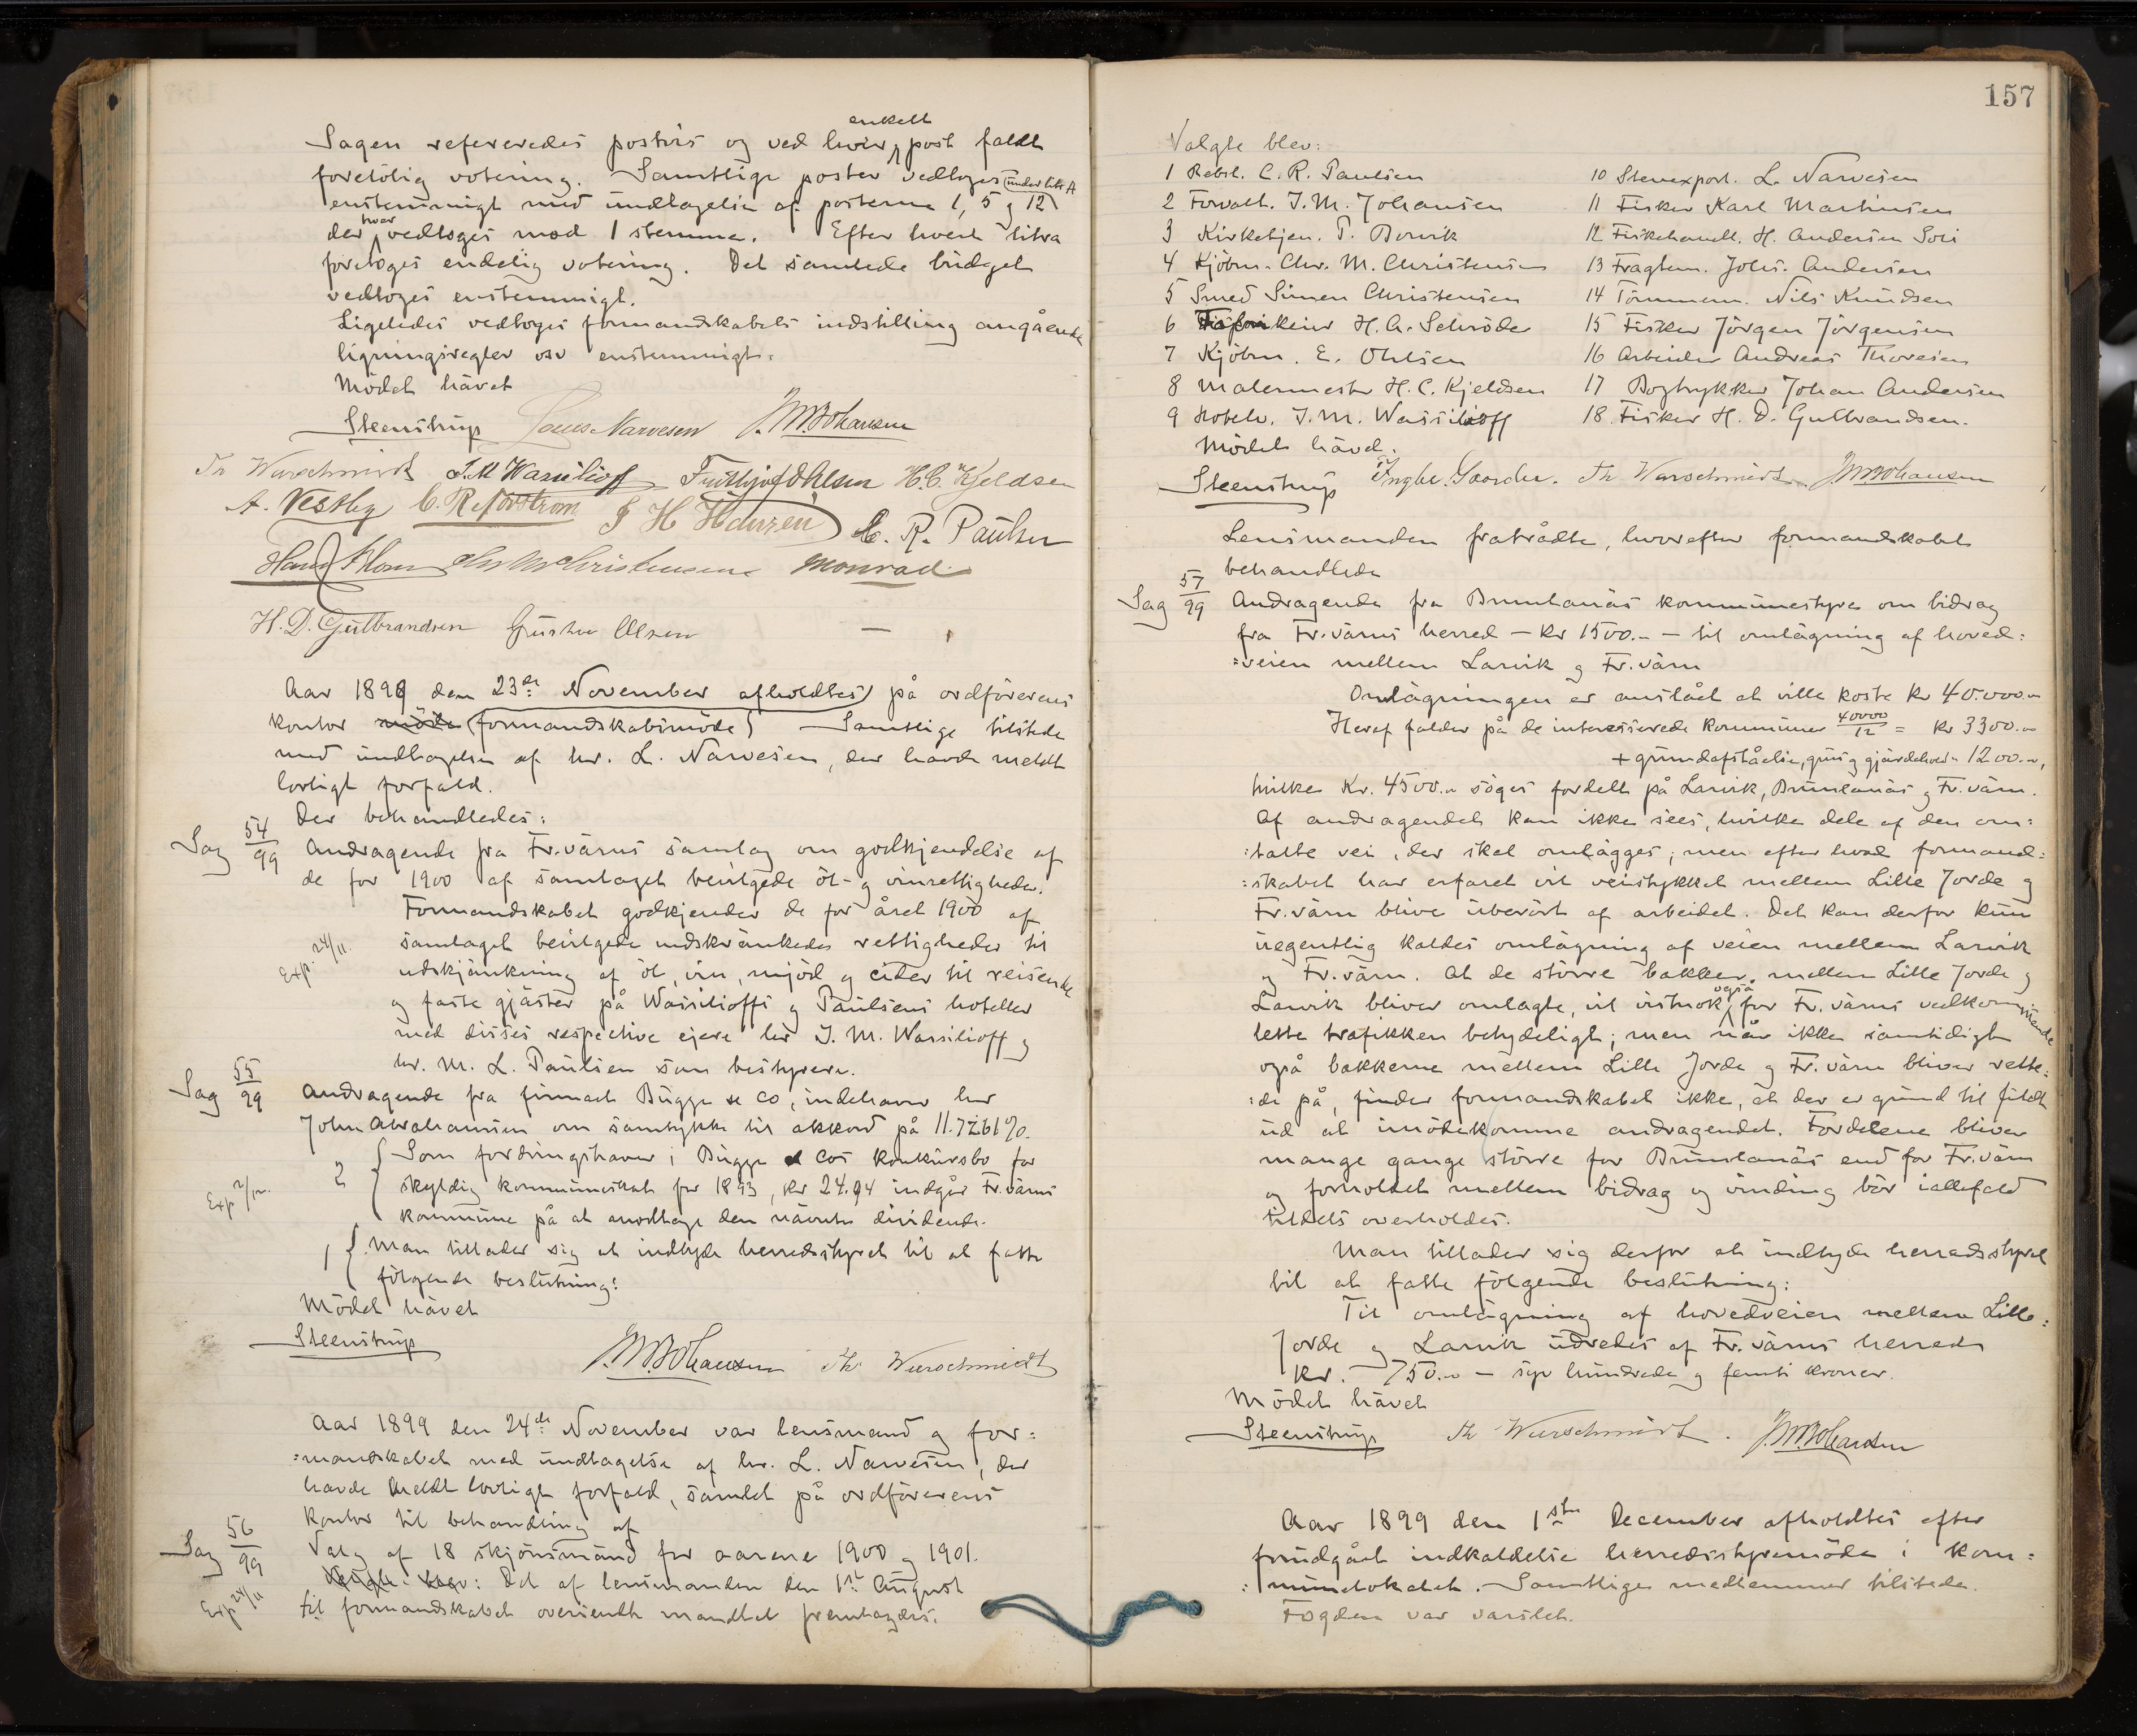 enkelt
Sagen refereredes postvis og ved hver post faldt
foreløbig votering. Samtlige poster vedtoges under litr A
enstemmigt med undtagelse af posterne 1, 5 g 12
der hver vedtoges mod 1 stemme. Efter hvert litra
foretoges endelig votering. Det samlede budget
vedtoges enstemmigt.
Ligeledes vedtoges formandskabets indstilling angående
ligningsregler osv enstemmigt.
Mödet hävet
Steenstrup Louis Narvesen J. M. Johansen
Th Wurschmidt J. M Wassilioff Frithjof Ohlsen H. C. Kjeldsen
A. Vestby C. R. Norström J H Hansen C. R. Paulsen
Hans Blom Chr M Christensen Monrad
H. D. Gulbrandsen Gustav Olsen —
Aar 1899 den 23de November afholdtes på ordförerens
kontor möde (formandskabsmöde) Samtlige tilstede
med undtagelse af hr. L. Narvesen, der havde meldt
lovligt forfald.
Der behandledes:
Sag 54/99 Andragende fra Fr.värns samlag om godkjendelse af
de for 1900 af samlaget bevilgede öl- g vinrettigheder.
Formandskabet godkjender de for året 1900 af
samlaget bevilgede indskränkede rettigheder til
Exp. 24/11.
udskjänkning af öl, vin, mjöd g cider til reisende
g faste gjäster på Wassilioffs g Paulsens hoteller
med disses respective ejere hr J. M. Wassilioff g
hr. M. L. Paulsen som bestyrere.
Sag 55/99 Andragende fra firmaet Bugge & Co, indehaver hr
John Abrahamsen om samtykke til akkord på 11.7261%.
2 { Som fordringshaver i Bugge & Cos konkursbo for
skyldig kommuneskat for 1893, kr 24.94 indgår Fr.värns
kommune på at modtage den nävnte dividende.
1 { Man tillader sig at indbyde herredsstyret til at fatte
fölgende beslutning:
Mödet hävet
Steenstrup
J. M. Johansen Th Wurschmidt
Aar 1899 den 24de November var lensmand g for:
:mandskabet med undtagelse af hr. L. Narvesen, der
havde meldt lovligt forfald, samlet på ordförerens
kontor til behandling af
Sag 56/99 Valg af 18 skjönsmänd for aarene 1900 g 1901.
Valgte blev: Det af lensmanden den 1st August
Exp 24/11
til formandskabet oversendte mandtal fremlagdes.
157
Valgte blev:
1 Rebsl. C. R. Paulsen
2 Forvalt. J. M. Johansen
3 Kirketjen. P. Borvik
4 Kjöbm. Chr. M. Christensen
5 Smed Simen Christensen
6 H. A. Schröder
7 Kjöbm. E. Ohlsen
8 Malermester H. C. Kjeldsen
9 Hotelv. J. M. Wassilioff
10 Stenexport. L. Narvesen
11 Fisker Karl Martinsen
12 Fiskehandl. H. Andersen Soli
13 Fragtem. Johs. Andersen
14 Tömmerm. Nils Knudsen
15 Fisker Jörgen Jörgensen
16 Arbeider Andreas Thoresen
17 Bogtrykker Johan Andersen
18. Fisker H. D. Gulbrandsen.
Mödet hävet.
Steenstrup Th Wurschmidt. J. M. Johansen
Lensmanden fratrådte, hvorefter formandskabet
behandlede
Sag 57/99 Andragende fra Brunlanäs kommunestyre om bidrag
fra Fr.värns herred – kr 1500.- – til omlägning af hoved:
:veien mellem Larvik g Fr.värn
Omlägningen er anslået at ville koste kr 40.000.-
Heraf falder på de interesserede kommuner 40000/12 = kr 3300.-
+ grundafståelse, grus g gjärdehold - 1200.-,
hvilke Kr. 4500.- söges fordelt på Larvik, Brunlanäs g Fr.värn.
Af andragendet kan ikke sees, hvilke dele af den om:
:talte vei, der skal omlägges; men efter hvad formand:
:skabet har erfaret vil veistykket mellem Lille Jorde g
Fr.värn blive uberört af arbeidet. Det kan derfor kun
uegentlig kaldes omlägning af veien mellem Larvik
g Fr.värn. At de större bakker mellem Lille Jorde g
Larvik bliver omlagte, vil vistnok også for Fr.värns vedkommende
lette trafikken betydeligt; men når ikke samtidigt
også bakkerne mellem Lille Jorde g Fr.värn bliver rette:
:de på, finder formandskabet ikke, at der er grund til fuldt
ud at imödekomme andragendet. Fordelene bliver
mange gange större for Brunlanäs end for Fr.värn
og forholdet mellem bidrag og vinding bör iallefald
tildels overholdes.
Man tillader sig derfor at indbyde herredsstyret
til at fatte fölgende beslutning:
Til omlägning af hovedveien mellem Lille:
Jorde g Larvik udredes af Fr.värns herred
kr. 750.- – syv hundrede g femti kroner.
Mödet hävet
Steenstrup Th Wurschmidt. J. M. Johansen
Aar 1899 den 1ste December afholdtes efter
forudgået indkaldelse herredsstyremöde i kom:
:munelokalet. Samtlige medlemmer tilstede.
Fogden var varslet.